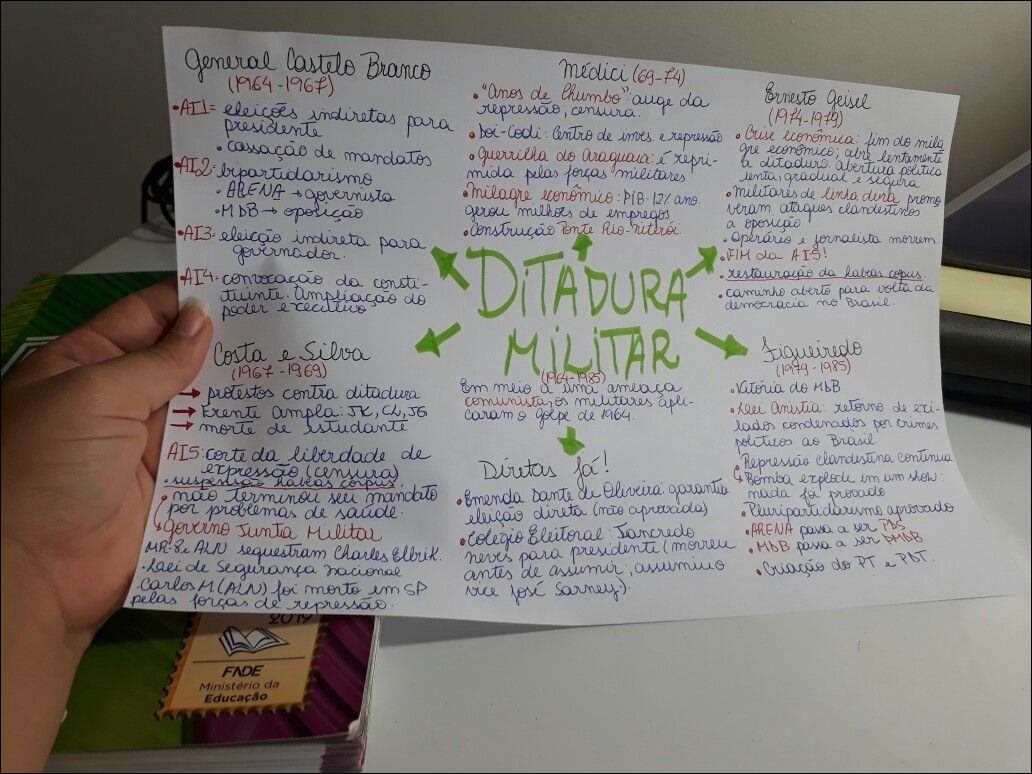 General Castelo Branco
(1964-1967)
• AI1= eleições indiretas para
presidente
• cassação de mandatos
• AI2= bipartidarismo
• ARENA → governista
• MDB → oposição
• AI3= eleição indireta para
governador.
AI4= convocação da consti-
tuinte. Ampliação do
poder executivo
Médici (69-74)
• "Anos de Chumbo": auge da
repressão, censura.
• Doi-Codi: Centro de inves. e repressão
• Guerrilha do Araguaia: é repri-
mida pelas forças militares
• Milagre econômico: PIB-12% ano.
gerou milhões de empregos
• Construção Ponte Rio-Niterói
Ernesto Geisel
(1974-1979)
• Crise econômica: fim do mila
gre econômico; abre lentamente
a ditadura. abertura política
lenta, gradual e segura
• militares de linha dura promo
veram ataques clandestinos
a oposição
• Operário e jornalista morrem.
• FIM da AI5!
• restauração da habeas corpus.
• caminho aberto para volta da
democracia no Brasil.
DITADURA
MILITAR
(1964-1985)
Em meio a uma ameaça
comunista, os militares apli-
caram o golpe de 1964.
Costa e Silva
(1967-1969)
→ protestos contra ditadura
→ Frente Ampla: JK, CL, JG
→ morte de estudante
AI5: corte da liberdade de
expressão (censura)
• suspensão habeas corpus.
• não terminou seu mandato
por problemas de saúde.
↳ Governo Junta Militar
MR-8 e ALN sequestram Charles Elbrik.
• Lei de Segurança Nacional
• Carlos M (ALN) foi morto em SP
pelas forças de repressão.
Diretas já!
• Emenda Dante de Oliveira: garantia
eleição direta (não aprovada)
• Colégio Eleitoral: Tancredo
Neves para presidente (morreu
antes de assumir, assumiu o
vice José Sarney).
Figueiredo
(1979-1985)
• Vitória do MDB
• Lei Anistia: retorno de exi-
lados condenados por crimes
políticos ao Brasil.
Repressão clandestina continua
↳ Bomba explode em um show:
nada foi provado
• Pluripartidarismo aprovado
• ARENA passa a ser PDS
• MDB passa a ser PMDB
• Criação do PT e PDT.
2019
FNDE
Ministério da
Educação